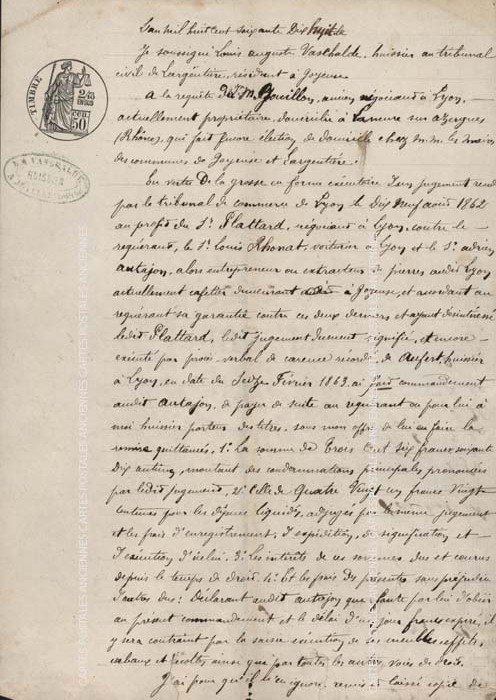 L'an mil huit cent soixante Dix huit le
Je soussigné Louis auguste Vaschalde, huissier au tribunal
civil de Largentière, résidant à Joyeuse
A la requête du Sr M. Gouillon, ancien négociant à Lyon,
actuellement propriétaire, domicilié à Lamure sur azergues
(Rhône), qui fait encore élection de domicile chez m.m. les maires
des communes de Joyeuse et Largentière.
En vertu De la grosse en forme exécutoire d'un jugement rendu
par le tribunal de commerce de Lyon le Dix neuf août 1862
au profit du Sr Plattard, négociant à Lyon, contre le
requérant, le Sr Louis Rhonat, voiturier à Lyon et le Sr adrien
autajon, alors entrepreneur ou extracteur de pierres audit Lyon
actuellement cafetier demeurant à Joyeuse, et accordant au
requérant sa garantie contre ces deux derniers et ayant désintéressé
ledit Plattard, ledit jugement dûment signifié, et encore
exécuté par procès verbal de carence récordé de Aufert, huissier
à Lyon, en date du Seize Février 1863, ai fait commandement
audit autajon, de payer de suite au requérant ou pour lui à
moi huissier porteur des titres, sous mon offre de lui en faire la
remise quittancés, 1° La somme de Trois Cent six francs soixante
Dix centimes, montant des condamnations principales prononcées
par ledit jugement, 2° Celle de Quatre Vingt un francs Vingt
Centimes pour les dépens liquidés, adjugés par le même jugement
et les frais d'enregistrement, d'expédition, de signification et
d'exécution d'icelui; 3° Les intérêts de ces sommes dus et courus
depuis le temps de droit. 4° Et les frais Des présentes sans préjudice
d'autres dus: Déclarant audit autajon que faute par lui d'obéir
au présent commandement et le délai d'un jour franc expiré, il
y sera contraint par la saisie exécution de ses meubles, effets,
cabaux et récoltes ainsi que par toutes les autres voies de droit.
J'ai pour qu'il n'en ignore, remis et laissé copie de
TIMBRE
2/10
EN SUS
50 cen